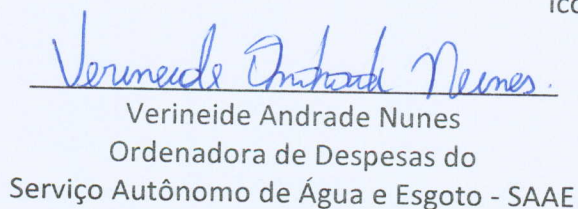 Verineide Andrade Nunes.
Verineide Andrade Nunes
Ordenadora de Despesas do
Serviço Autônomo de Água e Esgoto - SAAE